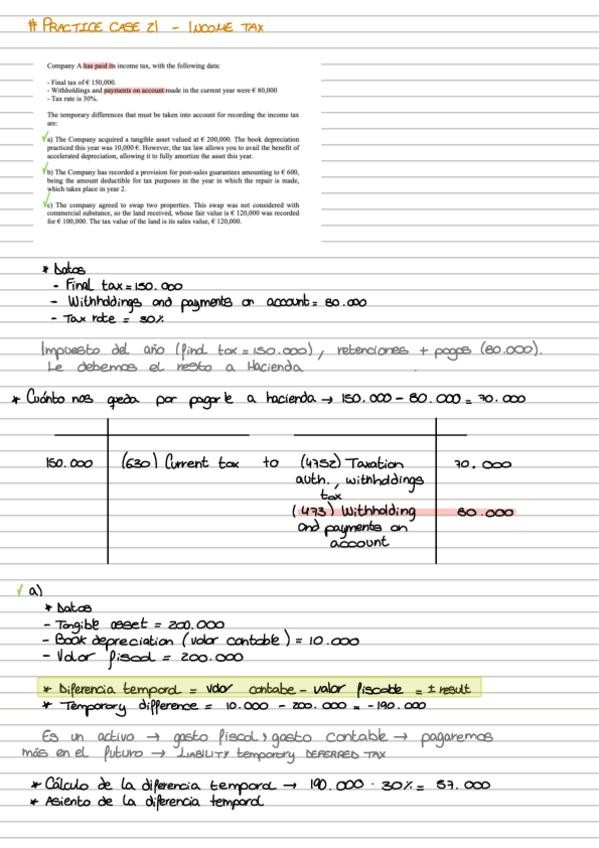 # PRACTICE CASE 21 - INCOME TAX
Company A has paid its income tax, with the following data:
- Final tax of € 150,000.
- Withholdings and payments on account made in the current year were € 80,000
- Tax rate is 30%.
The temporary differences that must be taken into account for recording the income tax
are:
a) The Company acquired a tangible asset valued at € 200,000. The book depreciation
practiced this year was 10,000 €. However, the tax law allows you to avail the benefit of
accelerated depreciation, allowing it to fully amortize the asset this year.
b) The Company has recorded a provision for post-sales guarantees amounting to € 600,
being the amount deductible for tax purposes in the year in which the repair is made,
which takes place in year 2.
c) The company agreed to swap two properties. This swap was not considered with
commercial substance, so the land received, whose fair value is € 120,000 was recorded
for € 100,000. The tax value of the land is its sales value, € 120,000.
* Datos
- Final tax = 150.000
- Withholdings and payments on account = 80.000
- Tax rate = 30%
Impuesto del año (final tax = 150.000), retenciones + pagos (80.000).
Le debemos el resto a Hacienda
* Cuánto nos queda por pagarle a hacienda → 150.000 - 80.000 = 70.000
150.000 (630) Current tax to (4752) Taxation 70.000
auth., withholdings
tax
(473) Withholding 80.000
and payments on
account
✓ a)
* Datos
- Tangible asset = 200.000
- Book depreciation (valor contable) = 10.000
- Valor fiscal = 200.000
* Diferencia temporal = valor contabe - valor fiscable = ± result
* Temporary difference = 10.000 - 200.000 = -190.000
Es un activo → gasto fiscal > gasto contable → pagaremos
más en el futuro → LIABILITY temporary DEFERRED TAX
* Cálculo de la diferencia temporal → 190.000 · 30% = 57.000
* Asiento de la diferencia temporal